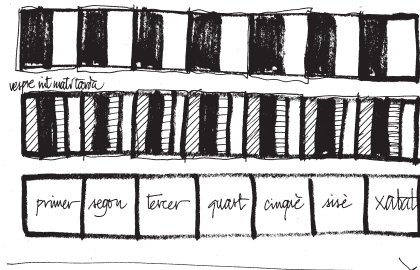 vespre nit matí tarda
primer segon tercer quart cinquè sisè xabat